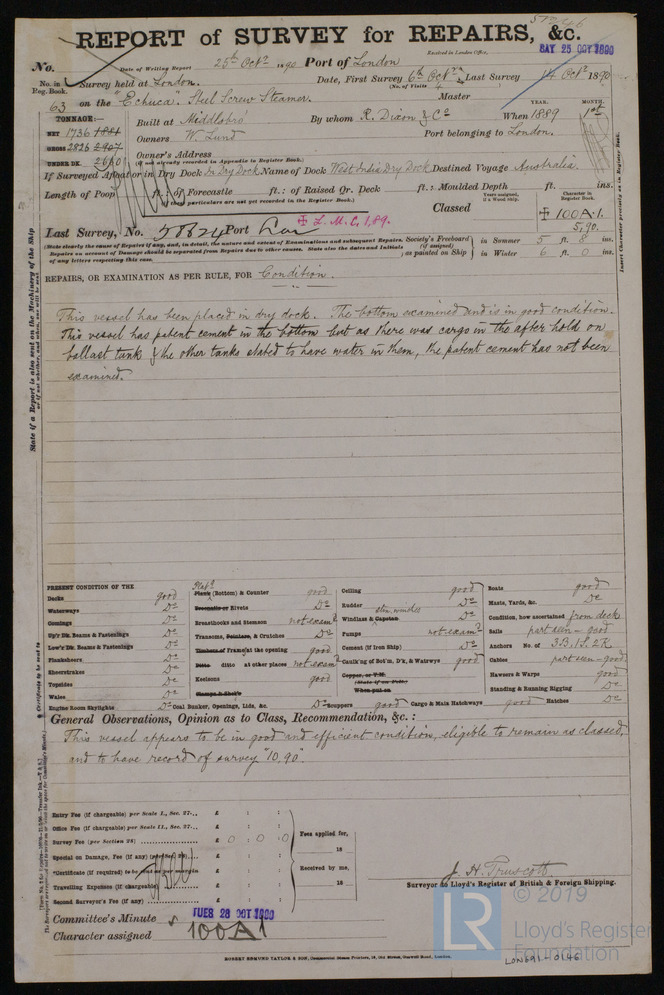 57246
REPORT of SURVEY for REPAIRS, &c.
Received in London Office,
SAT 25 OCT 1890
No.
Date of Writing Report 25th Octr 1890 Port of London
No. in Reg. Book. Survey held at London. Date, First Survey 6th Octr Last Survey 14 Octr 1890
(No. of Visits 4)
63 on the "Echuca" Steel Screw Steamer. Master
TONNAGE:
NET 1736
GROSS 2826 2907
UNDER DK. 2660
Built at Middlobro' By whom R. Dixon & Co When 1889 YEAR. MONTH. 1st
Owners W. Lund Port belonging to London.
Owner's Address
(if not already recorded in Appendix to Register Book.)
If Surveyed Afloat or in Dry Dock In Dry Dock Name of Dock West India Dry Dock Destined Voyage Australia.
Length of Poop ft.: of Forecastle ft.: of Raised Qr. Deck ft.: Moulded Depth ft. ins.
(if these particulars are not yet recorded in the Register Book.)
Classed
Years assigned, if a Wood ship.
Character in Register Book.
✠ 100A.1.
5,90.
✠ L.M.C. 1,89.
Last Survey, No. 28624 Port Lon
(State clearly the cause of Repairs if any, and, in detail, the nature and extent of Examinations and subsequent Repairs.
Repairs on account of Damage should be separated from Repairs due to other causes. State also the dates and Initials
of any letters respecting this case.
Society's Freeboard (if assigned) as painted on Ship in Summer 5 ft. 8 ins.
in Winter 6 ft. 0 ins.
REPAIRS, OR EXAMINATION AS PER RULE, FOR Condition.
This vessel has been placed in dry dock. The bottom examined and is in good condition.
This vessel has patent cement in the bottom but as there was cargo in the after hold on
ballast tank & the other tanks stated to have water in them, the patent cement has not been
examined.
State if a Report is also sent on the Machinery of the Ship
Insert Character precisely as in Register Book.
PRESENT CONDITION OF THE
Decks good
Waterways Do
Comings Do
Up'r Dk. Beams & Fastenings Do
Low'r Dk. Beams & Fastenings Do
Planksheers Do
Sheerstrakes Do
Topsides Do
Wales Do
Engine Room Skylights Do
Plats
Plank (Bottom) & Counter good
Treenails or Rivets Do
Breasthooks and Stemson not examd
Transoms, Pointers, & Crutches Do
Timbers of Frame at the opening good
Ditto ditto at other places not examd
Keelsons good
Clamps & Shelfs
Coal Bunker, Openings, Lids, &c. Do
Ceiling good
Rudder Do
Windlass & Capstan stm. winches Do
Pumps not examd
Cement (if Iron Ship) Do
Caulk'ng of Bot'm, D'k, & Watrwys good
Copper, or Y.M.
(State if on Felt)
When put on
Scuppers good Cargo & Main Hatchways good
Boats good
Masts, Yards, &c. Do
Condition, how ascertained from deck
Sails part seen - good
Anchors No. of 3B.1S.2K
Cables part seen - good
Hawsers & Warps good
Standing & Running Rigging Do
Hatches Do
General Observations, Opinion as to Class, Recommendation, &c.:
This vessel appears to be in good and efficient condition, eligible to remain as classed,
and to have record of survey "10,90".
Entry Fee (if chargeable) per Scale I., Sec. 27... £ : :
Office Fee (if chargeable) per Scale II., Sec. 27... £ : :
Survey Fee (per Section 28) £ 0 : 0 : 0
Special on Damage, Fee (if any) (per Sec. 28) £ : :
*Certificate (if required) to be sent as per margin £ : :
Travelling Expenses (if chargeable) £ : :
Second Surveyor's Fee (if any) £ : :
Fees applied for,
18
Received by me,
18
J. H. Truscott
Surveyor to Lloyd's Register of British & Foreign Shipping.
Committee's Minute TUES 28 OCT 1890
Character assigned 100A1
ROBERT EDMUND TAYLOR & SON, Commercial Steam Printers, 19, Old Street, Goswell Road, London.
© 2019
LR
Lloyd's Register
Foundation
LON691-0146